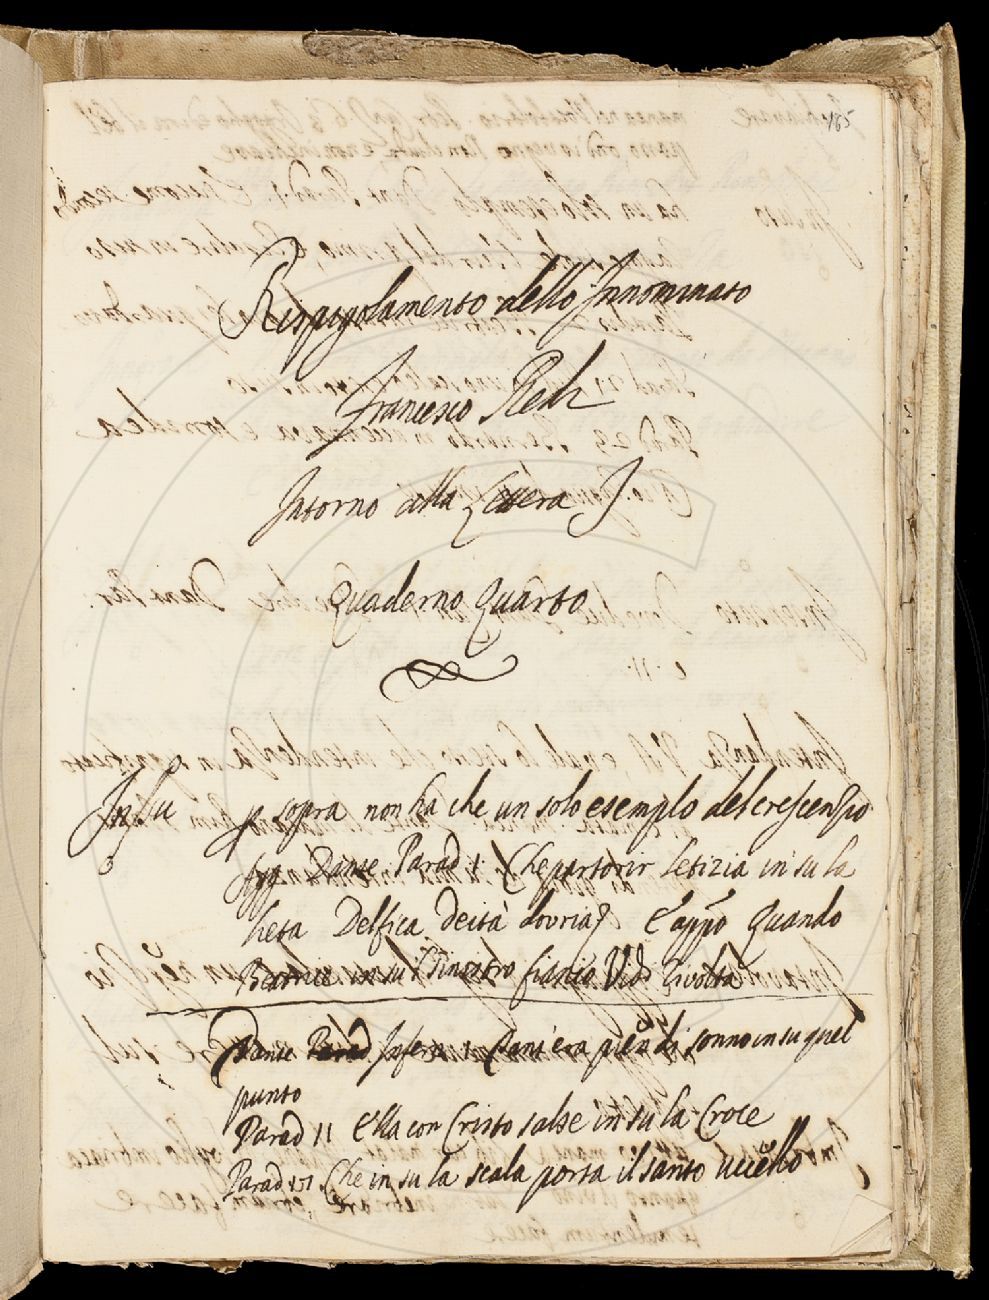 185
Rispigolamento dello Innominato
Francesco Redi
Intorno alla Lettera I
Quaderno Quarto
In su p sopra non ha che un solo esemplo del crescenzio
Dante Parad 1 Che partorir letizia in su la
lieta Delfica deità dovria E appo Quando
Beatrice in su 'l sinistro fianco Vidi rivolta
Dante Infern 1 Tant'era pien di sonno in su quel
punto
Parad 11 Ella con Cristo salse in su la Croce
Parad 17 Che in su la scala porta il santo uccello